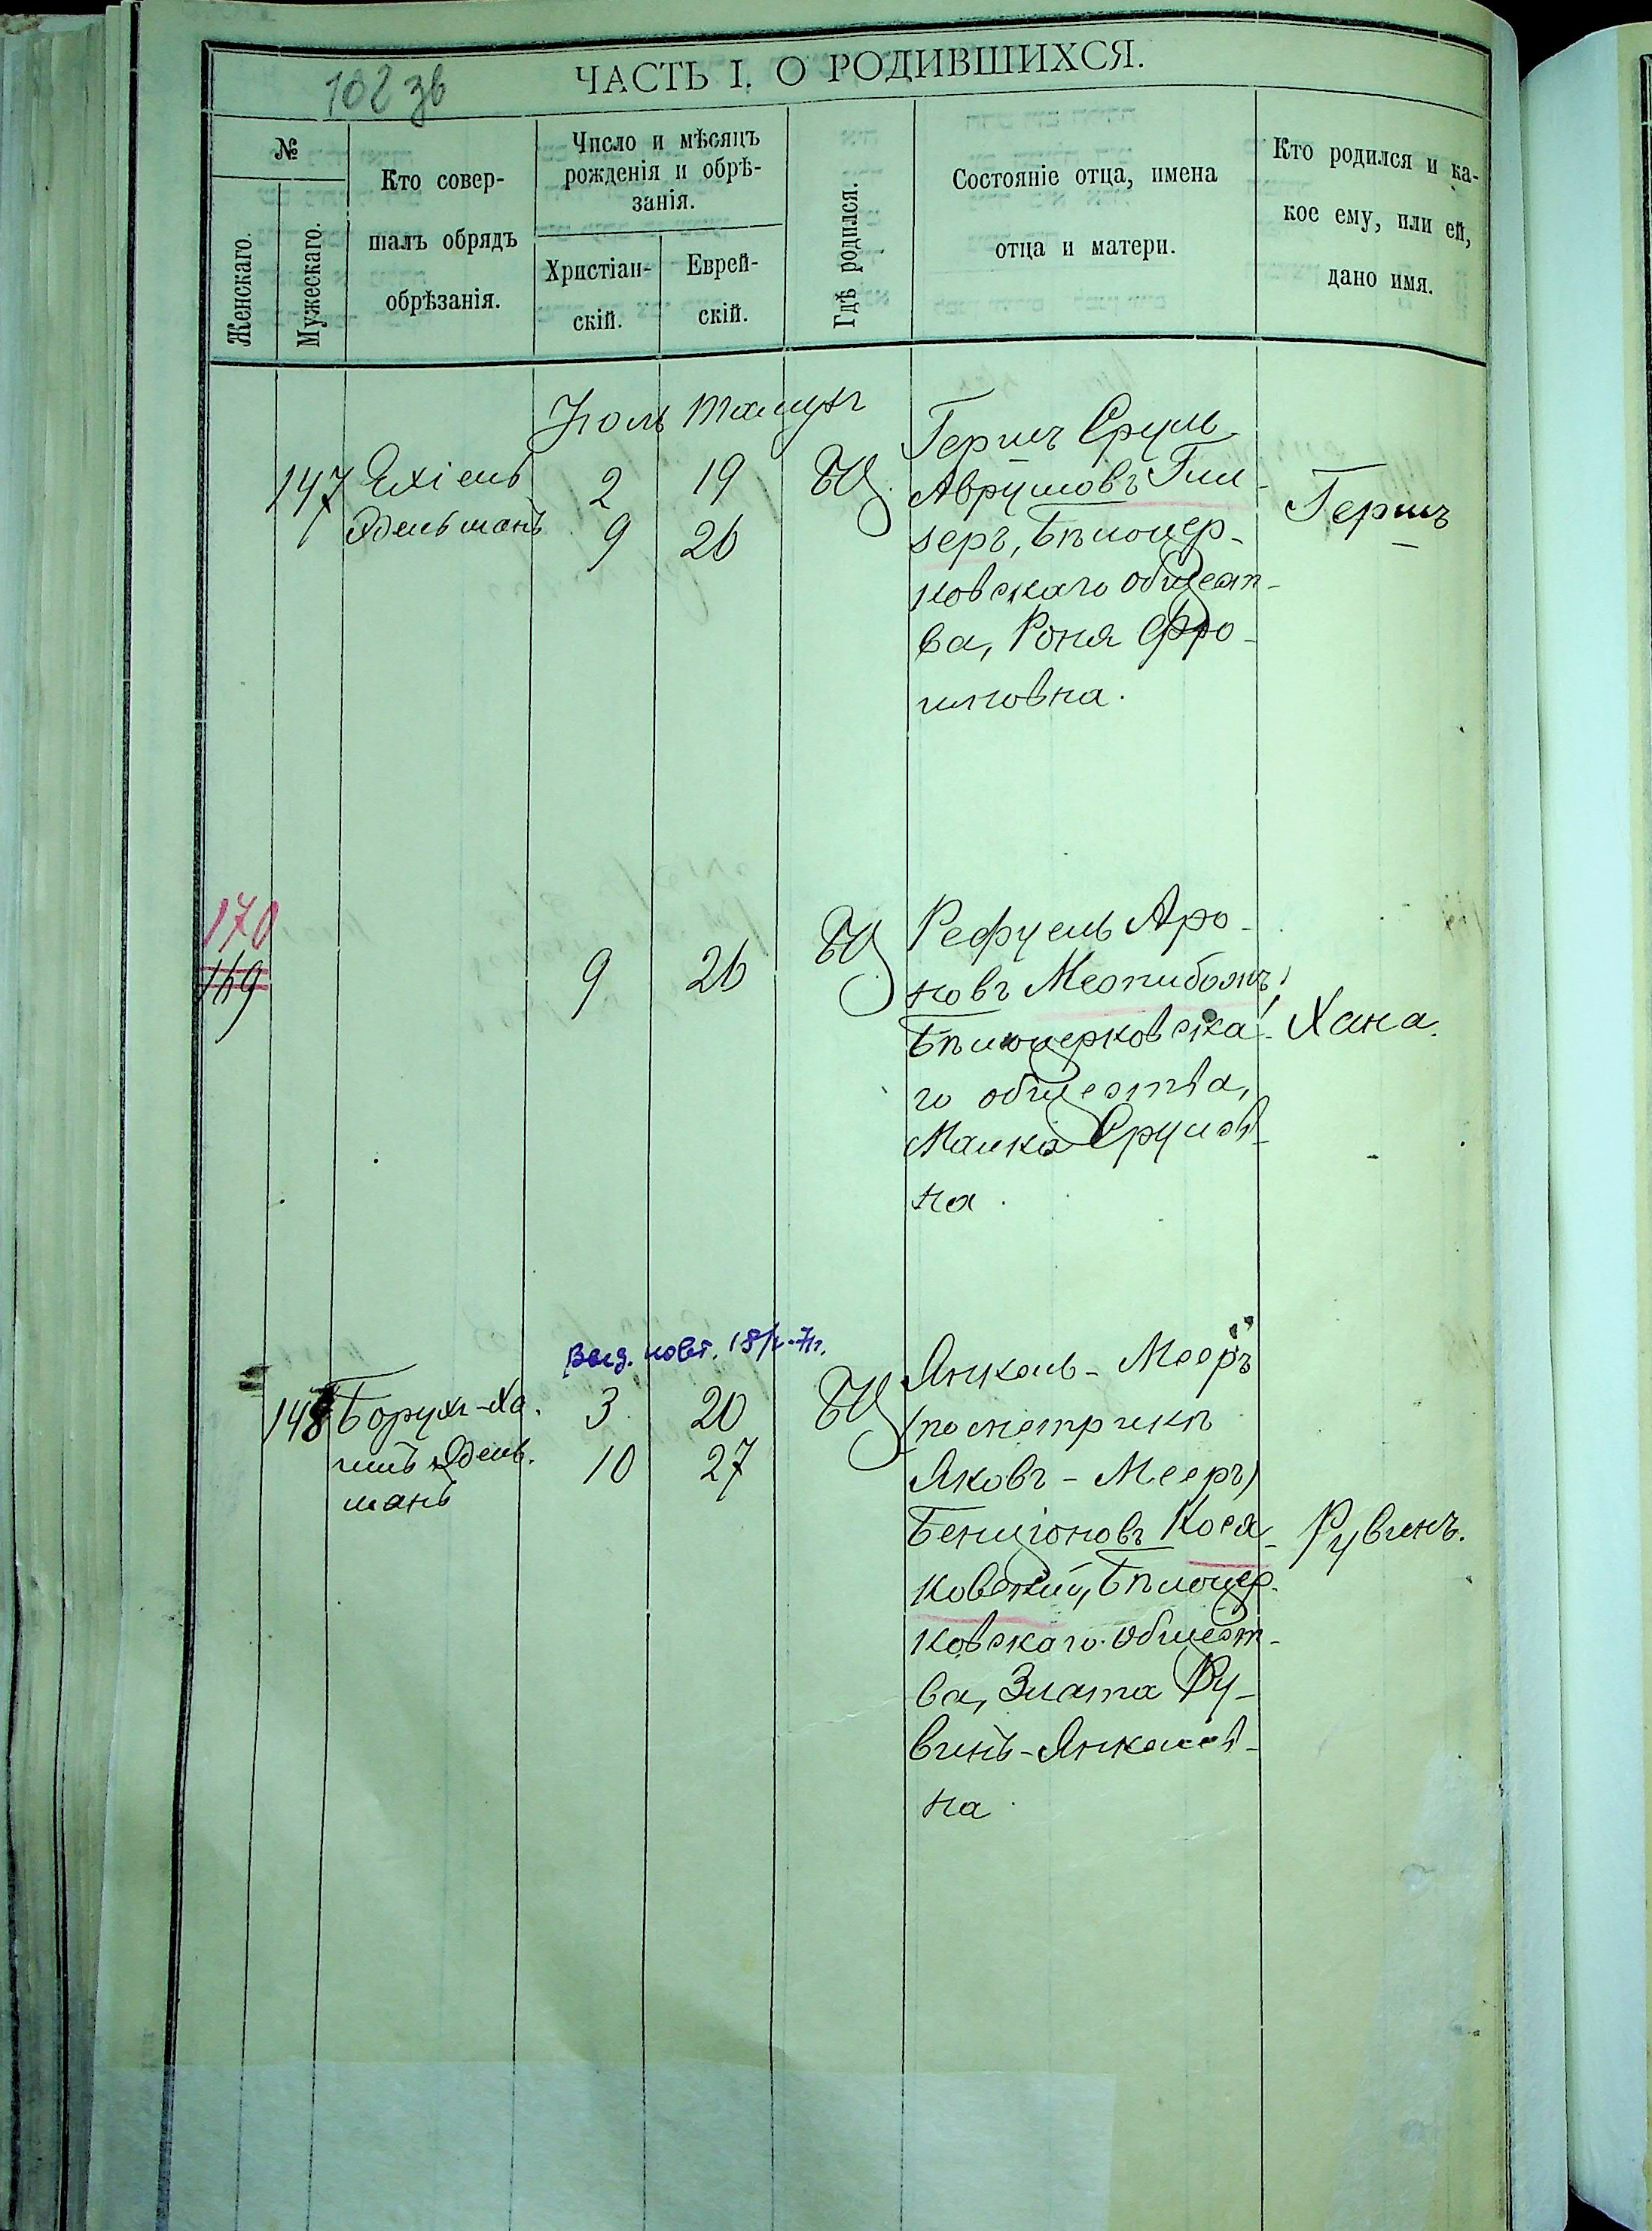 102 зв
ЧАСТЬ I. О РОДИВШИХСЯ.
№
Женскаго.
Мужескаго.
Кто совер-
шалъ обрядъ
обрѣзанія.
Число и мѣсяцъ
рожденія и обрѣ-
занія.
Христіан-
скій.
Еврей-
скій.
Гдѣ родился.
Состояніе отца, имена
отца и матери.
Кто родился и ка-
кое ему, или ей,
дано имя.
Іюль Тамузъ
147 Ехіель 2 19 БЦ
Эдельманъ 9 26
Гершъ Сруль
Аврумовъ Гил-
зеръ, Бѣлоцер-
ковскаго общест-
ва, Роня Фро-
имовна.
Гершъ
170
169 9 26 БЦ
Рефуель Аро-
новъ Межибожъ,
Бѣлоцерковска-
го общества,
Малка Срулов-
на.
Хана.
Выд. повт.
148 Борухъ-Ха- 3 20 БЦ
имъ Эдель- 10 27
манъ
Янкель-Мееръ
(по метрикѣ
Яковъ-Мееръ)
Бенціоновъ Кося-
ковскій, Бѣлоцер-
ковскаго общест-
ва, Злата Ру-
винъ-Янкелев-
на.
Рувинъ.